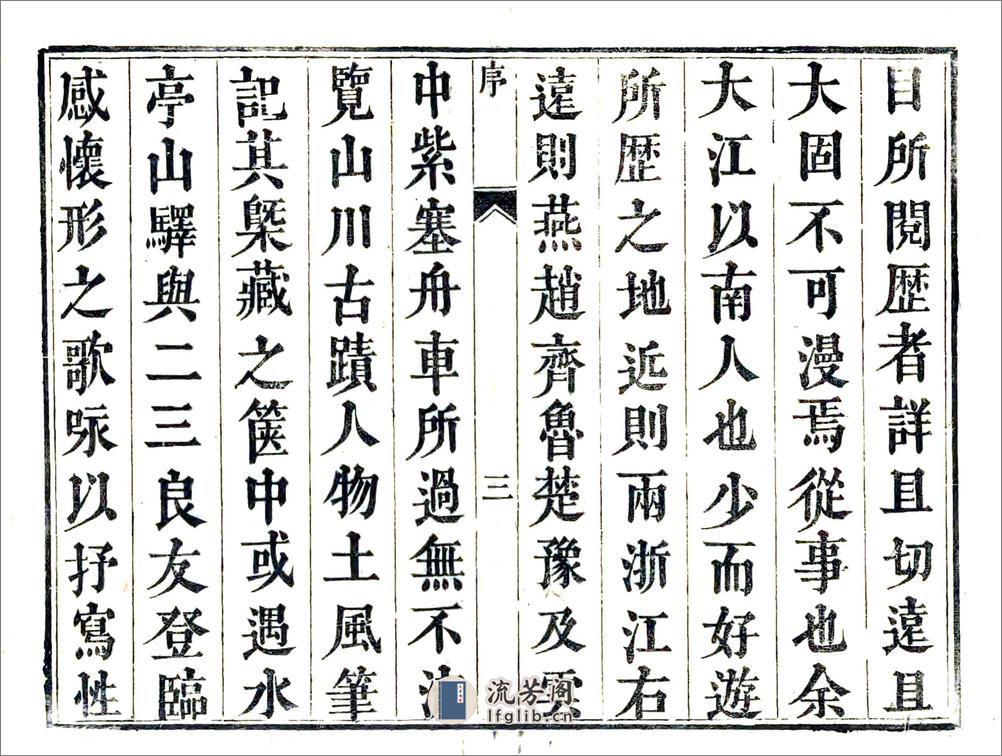 目所閱歷者詳且切遠且
大固不可漫焉從事也余
大江以南人也少而好遊
所歷之地近則兩浙江右
遠則燕趙齊魯楚豫及雲
序
三
中紫塞舟車所過無不
覽山川古蹟人物土風筆
記其槩藏之篋中或遇水
亭山驛與二三良友登臨
感懷形之歌咏以抒寫性
流芳阁
lfglib.cn